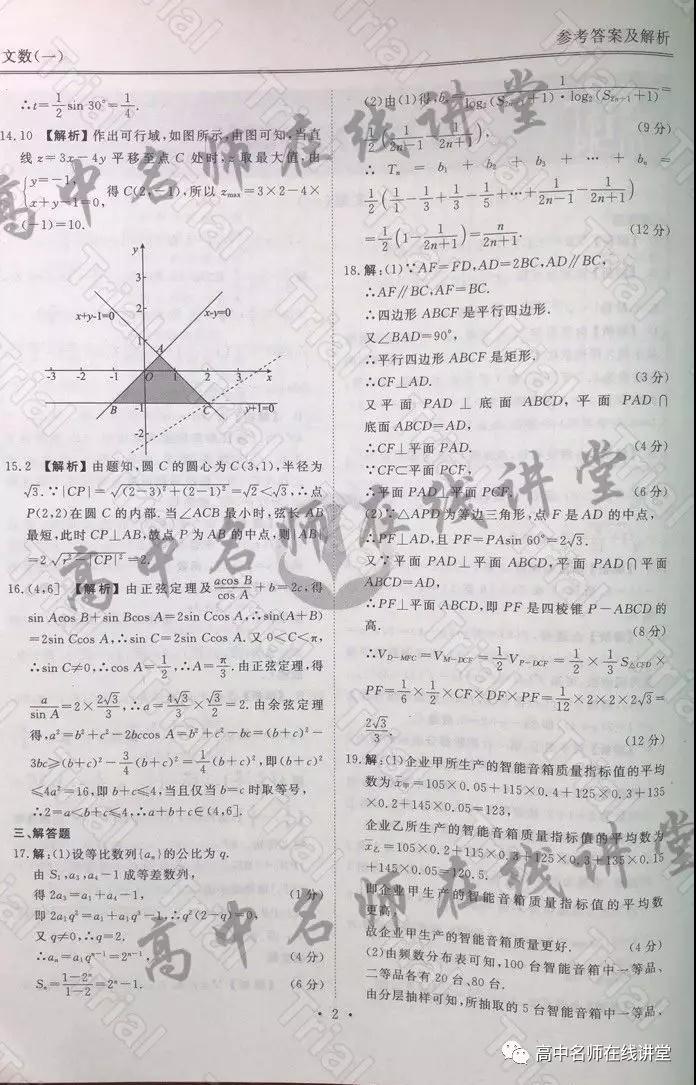 参考答案及解析
文数(一)
∴t=1/2 sin 30°=1/4.
14.10 【解析】作出可行域,如图所示,由图可知,当直
线 z=3x-4y 平移至点 C 处时,z 取最大值,由
{y=-1, x+y-1=0, 得 C(2,-1),所以 z_max=3×2-4×
(-1)=10.
y
3
2
x+y-1=0
x-y=0
1
A
-3 -2 -1 O 1 2 3 x
B -1 C y+1=0
-2
15.2 【解析】由题知,圆 C 的圆心为 C(3,1),半径为
√3.∵|CP|=√((2-3)²+(2-1)²)=√2<√3,∴点
P(2,2)在圆 C 的内部.当∠ACB 最小时,弦长 AB
最短,此时 CP⊥AB,故点 P 为 AB 的中点,则|AB|
=2√(r²-|CP|²)=2.
16.(4,6] 【解析】由正弦定理及 acos B/cos A+b=2c,得
sin Acos B+sin Bcos A=2sin Ccos A,∴sin(A+B)
=2sin Ccos A,∴sin C=2sin Ccos A.又 0<C<π,
∴sin C≠0,∴cos A=1/2,∴A=π/3.由正弦定理,得
a/sin A=2×2√3/3,∴a=4√3/3×√3/2=2.由余弦定理
得,a²=b²+c²-2bccos A=b²+c²-bc=(b+c)²-
3bc≥(b+c)²-3/4(b+c)²=1/4(b+c)²,即(b+c)²
≤4a²=16,即 b+c≤4,当且仅当 b=c 时取等号,
∴2=a<b+c≤4,∴a+b+c∈(4,6].
三、解答题
17.解:(1)设等比数列{aₙ}的公比为 q.
由 S₁,a₃,a₄-1 成等差数列,
得 2a₃=a₁+a₄-1, (1分)
即 2a₁q²=a₁+a₁q³-1,∴q²(2-q)=0,
又 q≠0,∴q=2,
∴aₙ=a₁qⁿ⁻¹=2ⁿ⁻¹, (4分)
Sₙ=(1-2ⁿ)/(1-2)=2ⁿ-1. (6分)
(2)由(1)得,bₙ=1/(log₂(S₂ₙ₊₁+1)·log₂(S₂ₙ₋₁+1))=
1/2(1/(2n-1)-1/(2n+1)), (9分)
∴ Tₙ = b₁ + b₂ + b₃ + ⋯ + bₙ =
1/2(1/1-1/3+1/3-1/5+⋯+1/(2n-1)-1/(2n+1))
=1/2(1-1/(2n+1))=n/(2n+1). (12分)
18.解:(1)∵AF=FD,AD=2BC,AD∥BC,
∴AF∥BC,AF=BC.
∴四边形 ABCF 是平行四边形.
又∠BAD=90°,
∴平行四边形 ABCF 是矩形,
∴CF⊥AD. (3分)
又平面 PAD⊥底面 ABCD,平面 PAD∩
底面 ABCD=AD,
∴CF⊥平面 PAD. (4分)
∵CF⊂平面 PCF,
∴平面 PAD⊥平面 PCF. (6分)
(2)∵△APD 为等边三角形,点 F 是 AD 的中点,
∴PF⊥AD,且 PF=PAsin 60°=2√3.
又∵平面 PAD⊥平面 ABCD,平面 PAD∩平面
ABCD=AD,
∴PF⊥平面 ABCD,即 PF 是四棱锥 P-ABCD 的
高. (8分)
∴V_D-MFC=V_M-DCF=1/2 V_P-DCF=1/2×1/3 S△CFD×
PF=1/6×1/2×CF×DF×PF=1/12×2×2×2√3=
2√3/3. (12分)
19.解:(1)企业甲所生产的智能音箱质量指标值的平均
数为 x̄甲=105×0.05+115×0.4+125×0.3+135
×0.2+145×0.05=123,
企业乙所生产的智能音箱质量指标值的平均数为
x̄乙=105×0.2+115×0.3+125×0.3+135×0.15
+145×0.05=120.5,
即企业甲生产的智能音箱质量指标值的平均数
更高,
故企业甲生产的智能音箱质量更好. (4分)
(2)由频数分布表可知,100 台智能音箱中一等品、
二等品各有 20 台、80 台.
由分层抽样可知,所抽取的 5 台智能音箱中一等品、
· 2 ·
高中名师在线讲堂
高中名师在线讲堂
高中名师在线讲堂
Trial
高中名师在线讲堂